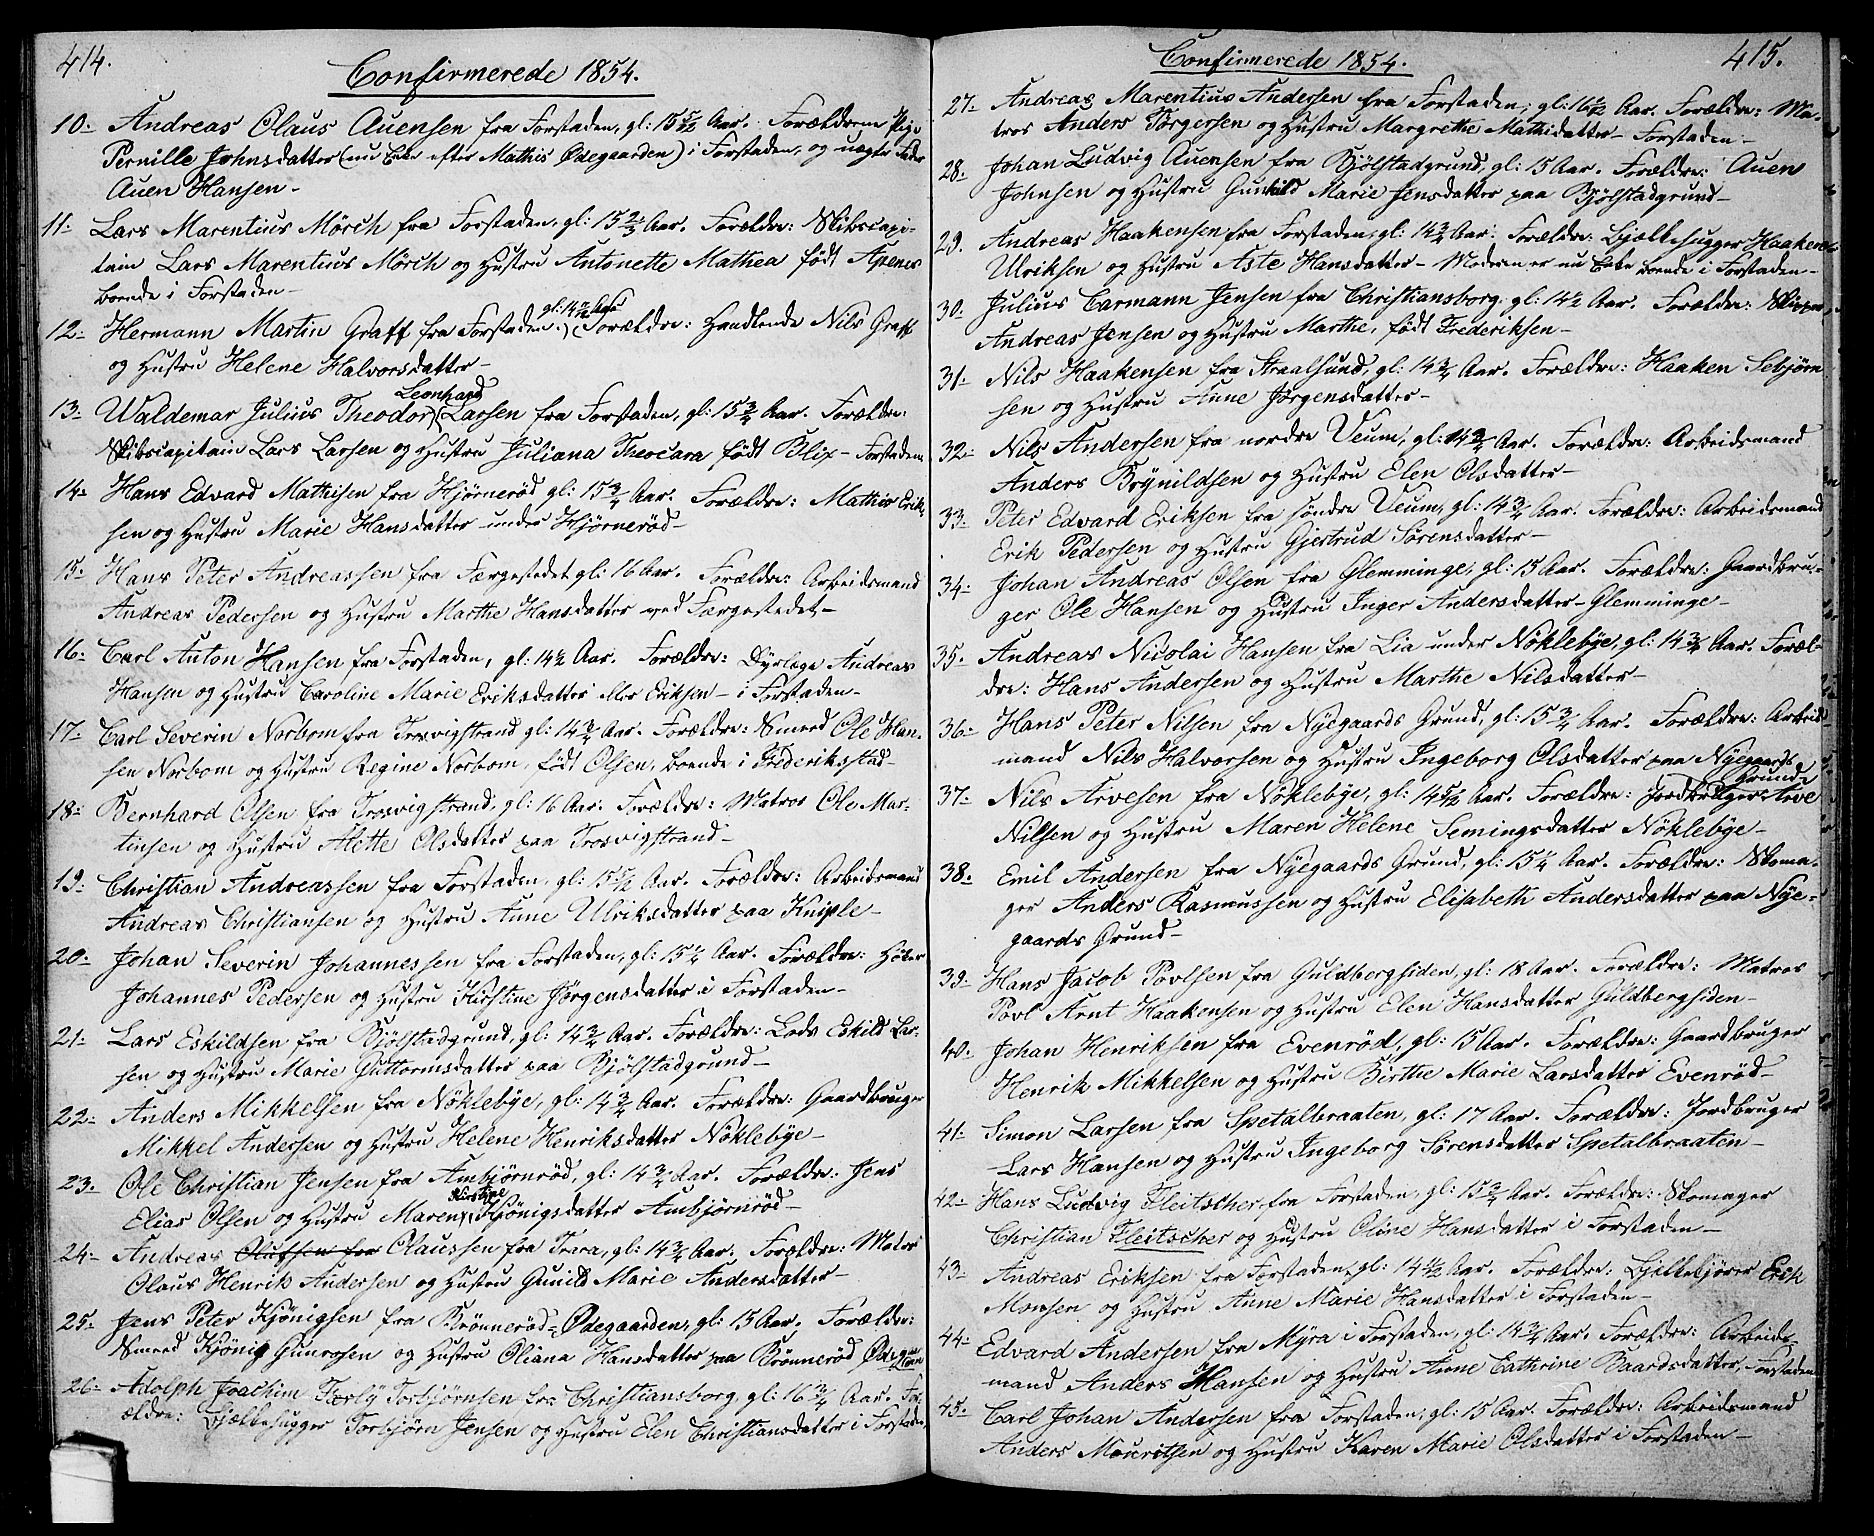 414.
Confirmerede 1854.
10. Andreas Olaus Auensen fra Forstaden, gl: 15 5/12 Aar. Forælderne Pige
Pernille Johnsdatter (nu Enke efter Mathis Ødegaarden) i Forstaden, og uægte Fader
Auen Hansen-
11. Lars Marentius Mörch fra Forstaden, gl: 15 2/3 Aar. Forældre: Skibscapi-
tain Lars Marentius Mörch og Hustru Antonette Mathea født Apenes
boende i Forstaden-
gl: 14 1/2 Aar
12. Hermann Martin Graff fra Forstaden. Forældre: Handlende Nils Graff
og Hustru Helene Halvorsdatter-
Leonhard
13. Waldemar Julius Theodor Larsen fra Forstaden, gl: 15 3/4 Aar. Forældre:
Skibscapitain Lars Larsen og Hustru Juliana Theocara født Blix- Forstaden
14. Hans Edvard Mathisen fra Hjørnerød gl: 15 3/4 Aar. Forældre: Mathis Erik-
sen og Hustru Marie Hansdatter under Hjørnerød-
15. Hans Peter Andreassen fra Færgestedet gl: 16 Aar. Forældre: Arbeidsmand
Andreas Pedersen og Hustru Marthe Hansdatter ved Færgestedet-
16. Carl Anton Hansen fra Forstaden, gl: 14 1/2 Aar. Forældre: Dyrlæge Andreas
Hansen og Hustru Caroline Marie Eriksdatter eller Eriksen- i Forstaden-
17. Carl Severin Norbom fra Trosvigstrand gl: 14 3/4 Aar. Forældre: Smeed Ole Han-
sen Norbom og Hustru Regine Norbom, født Olsen, boende i Frederiksstad-
18. Bernhard Olsen fra Trosvigstrand, gl: 16 Aar. Forældre: Matros Ole Mar-
tinsen og Hustru Alette Olsdatter paa Trosvigstrand-
19. Christian Andreassen fra Forstaden, gl: 15 5/12 Aar. Forældre: Arbeidsmand
Andreas Christiansen og Hustru Anne Ulriksdatter paa Kniple-
20. Johan Severin Johannessen fra Forstaden, gl: 15 1/4 Aar. Forældre: Høker
Johannes Pedersen og Hustru Kirstine Jörgensdatter i Forstaden-
21. Lars Eskildsen fra Bjölstadgrund, gl: 14 3/4 Aar. Forældre: Lods Eskild Lar-
sen og Hustru Marie Guttormsdatter paa Bjölstadgrund-
22. Anders Mikkelsen fra Nöklebye, gl: 14 3/4 Aar. Forældre: Gaardbruger
Mikkel Andersen og Hustru Helene Henriksdatter Nöklebye-
23. Ole Christian Jensen fra Ambjørnrød, gl: 14 3/4 Aar. Forældre: Jens
Kirstine
Elias Olsen og Hustru Maren Kjönigsdatter Ambjørnrød-
24. Andreas Olufsen fra Olaussen fra Trara, gl: 14 3/4 Aar. Forældre: Matros
Olaus Henrik Andersen og Hustru Gunild Marie Andersdatter-
25. Jens Peter Kjönigsen fra Brönnerød Ødegaarden, gl: 15 Aar. Forældre:
Smeed Kjönig Gunrosen og Hustru Oliana Hansdatter paa Brönnerød Ødegaarden
26. Adolph Joachim Torbjørnsen fra Christiansborg, gl: 16 3/4 Aar. For-
ældre: Bjælkehugger Torbjörn Jensen og Hustru Elen Christiansdatter i Forstaden
415.
Confirmerede 1854.
27. Andreas Marentius Andersen fra Forstaden, gl: 16 1/2 Aar. Forældre: Ma-
tros Anders Börgersen og Hustru Margrethe Mathisdatter- Forstaden-
28. Johan Ludvig Auensen fra Bjölstadgrund, gl: 15 Aar. Forældre: Auen
Johnsen og Hustru Gunhild Marie Jensdatter paa Bjölstadgrund-
29. Andreas Haakensen fra Forstaden, gl: 14 3/4 Aar. Forældre: Bjælkehugger Haaken
Ulriksen og Hustru Aste Hansdatter- Moderen er nu Enke boende i Forstaden-
30. Julius Carmann Jensen fra Christiansborg. gl: 14 1/2 Aar. Forældre: Skipper
Andreas Jensen og Hustru Marthe, født Frederiksen-
31. Nils Haakensen fra Straalsund, gl: 14 3/4 Aar. Forældre: Haaken Sebjörn
sen og Hustru Anne Jörgensdatter-
32. Nils Andersen fra nordre Veum, gl: 14 3/4 Aar. Forældre: Arbeidsmand
Anders Brynildsen og Hustru Elen Olsdatter-
33. Peter Edvard Eriksen fra søndre Veum, gl: 14 3/4 Aar. Forældre: Arbeidsmand
Erik Pedersen og Hustru Gjertrud Sörensdatter-
34. Johan Andreas Olsen fra Glemminge, gl: 15 Aar. Forældre: Gaardbru-
ger Ole Hansen og Hustru Inger Andersdatter- Glemminge-
35. Andreas Nicolai Hansen fra Lia under Nöklebye, gl: 14 3/4 Aar. Foræl-
dre: Hans Andersen og Hustru Marthe Nilsdatter-
36. Hans Peter Nilsen fra Nyegaards Grund, gl: 15 3/4 Aar. Forældre: Arbeids
mand Nils Halvorsen og Hustru Ingeborg Olsdatter paa Nyegaards
Grund
37. Nils Arvesen fra Nöklebye, gl: 14 5/12 Aar. Forældre: Jordbruger Arve
Nilsen og Hustru Maren Helene Semingsdatter Nöklebye-
38. Emil Andersen fra Nyegaards Grund, gl: 15 1/4 Aar. Forældre: Skoma-
ger Anders Rasmussen og Hustru Elisabeth Andersdatter paa Nye-
gaards Grund-
39. Hans Jacob Povlsen fra Guldbergsiden, gl: 18 Aar. Forældre: Matros
Povl Arnt Haakensen og Hustru Elen Hansdatter Guldbergsiden-
40. Johan Henriksen fra Evenrød, gl: 15 Aar. Forældre: Gaardbruger
Henrik Mikkelsen og Hustru Birthe Marie Larsdatter Evenrød-
41. Simon Larsen fra Spetalbraaten, gl: 17 Aar. Forældre: Jordbruger
Lars Hansen og Hustru Ingeborg Sörensdatter Spetalbraaten-
42. Hans Ludvig Fleitscher fra Forstaden, gl: 15 3/4 Aar. Forældre: Skomager
Christian Fleitscher og Hustru Oline Hansdatter i Forstaden-
43. Andreas Eriksen fra Forstaden, gl: 14 1/2 Aar. Forældre: Bjelkekjører Erik
Monsen og Hustru Anne Marie Hansdatter i Forstaden-
44. Edvard Andersen fra Myra i Forstaden, gl: 14 3/4 Aar. Forældre: Arbeids-
mand Anders Hansen og Hustru Anne Cathrine Baardsdatter, Forstaden
45. Carl Johan Andersen fra Forstaden, gl: 15 Aar. Forældre: Arbeidsmand
Anders Mouritsen og Hustru Karen Marie Olsdatter i Forstaden-